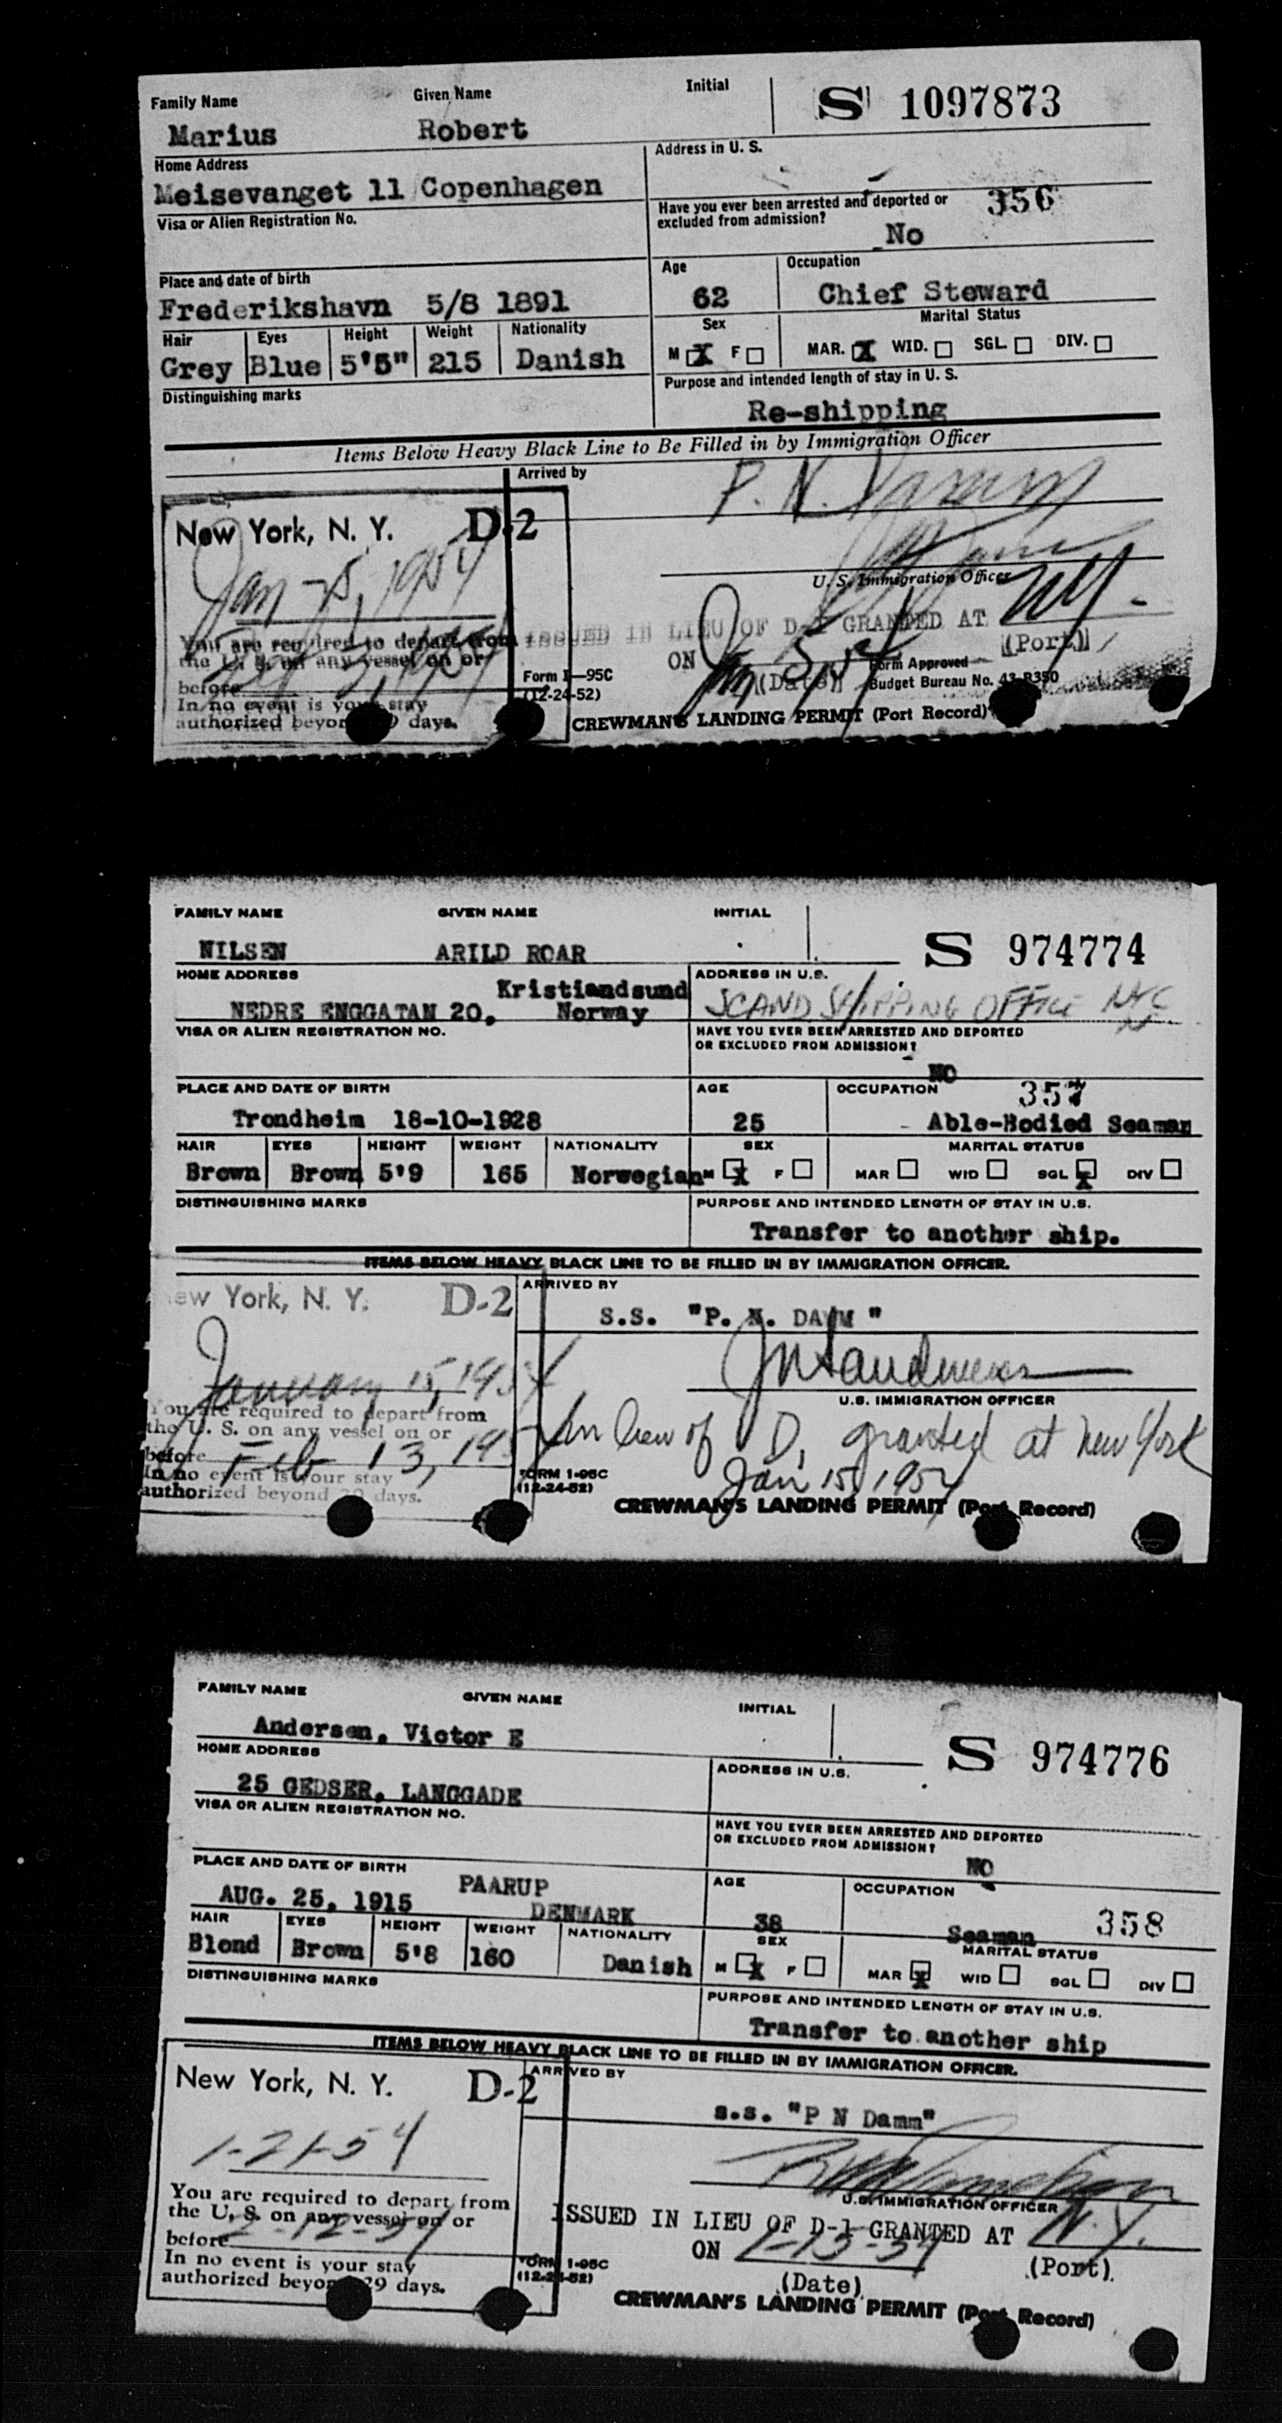 Family Name Given Name Initial
S 1097873
Marius Robert
Home Address Address in U. S.
Meisevanget 11 Copenhagen
Visa or Alien Registration No.
Have you ever been arrested and deported or
excluded from admission?
356
No
Place and date of birth Age Occupation
Frederikshavn 5/8 1891 62 Chief Steward
Hair Eyes Height Weight Nationality Sex Marital Status
Grey Blue 5'5" 215 Danish M X F MAR. X WID. SGL. DIV.
Distinguishing marks Purpose and intended length of stay in U. S.
Re-shipping
Items Below Heavy Black Line to Be Filled in by Immigration Officer
Arrived by
P. N. Damm
New York, N. Y. D-2
Jan 1954
U. S. Immigration Officer
You are required to depart from
the U. S. on any vessel on or
before
In no event is your stay
authorized beyond days.
ISSUED IN LIEU OF D-1 GRANTED AT N.Y.
(Port)
ON Jan
(Date)
Form I-95C
(12-24-52)
Form Approved
Budget Bureau No. 43-R350
CREWMAN'S LANDING PERMIT (Port Record)
FAMILY NAME GIVEN NAME INITIAL
S 974774
NILSEN ARILD ROAR
HOME ADDRESS ADDRESS IN U.S.
Kristiandsund
NEDRE ENGGATAN 20, Norway
SCAND SHIPPING OFFICE NYC
VISA OR ALIEN REGISTRATION NO.
HAVE YOU EVER BEEN ARRESTED AND DEPORTED
OR EXCLUDED FROM ADMISSION?
NO
PLACE AND DATE OF BIRTH AGE OCCUPATION
357
Trondheim 18-10-1928 25 Able-Bodied Seaman
HAIR EYES HEIGHT WEIGHT NATIONALITY SEX MARITAL STATUS
Brown Brown 5'9 165 Norwegian M X F MAR WID SGL X DIV
DISTINGUISHING MARKS PURPOSE AND INTENDED LENGTH OF STAY IN U.S.
Transfer to another ship.
ITEMS BELOW HEAVY BLACK LINE TO BE FILLED IN BY IMMIGRATION OFFICER.
ARRIVED BY
New York, N. Y. D-2
S.S. "P. N. DAMM "
January 15, 1954
U.S. IMMIGRATION OFFICER
You are required to depart from
the U. S. on any vessel on or
before Feb 13, 1954
In no event is your stay
authorized beyond 29 days.
In lieu of D, granted at New York
Jan 15, 1954
FORM I-95C
(12-24-52)
CREWMAN'S LANDING PERMIT (Port Record)
FAMILY NAME GIVEN NAME INITIAL
S 974776
Andersen, Victor E
HOME ADDRESS ADDRESS IN U.S.
25 GEDSER, LANGGADE
VISA OR ALIEN REGISTRATION NO.
HAVE YOU EVER BEEN ARRESTED AND DEPORTED
OR EXCLUDED FROM ADMISSION?
NO
PLACE AND DATE OF BIRTH AGE OCCUPATION
AUG. 25, 1915 PAARUP
DENMARK
38 Seaman 358
HAIR EYES HEIGHT WEIGHT NATIONALITY SEX MARITAL STATUS
Blond Brown 5'8 160 Danish M X F MAR X WID SGL DIV
DISTINGUISHING MARKS PURPOSE AND INTENDED LENGTH OF STAY IN U.S.
Transfer to another ship
ITEMS BELOW HEAVY BLACK LINE TO BE FILLED IN BY IMMIGRATION OFFICER.
ARRIVED BY
New York, N. Y. D-2
s.s. "P N Damm"
1-21-54
U.S. IMMIGRATION OFFICER
You are required to depart from
the U. S. on any vessel on or
before 2-12-54
In no event is your stay
authorized beyond 29 days.
ISSUED IN LIEU OF D-1 GRANTED AT N.Y.
ON 1-15-54 (Port)
(Date)
FORM I-95C
(12-24-52)
CREWMAN'S LANDING PERMIT (Port Record)